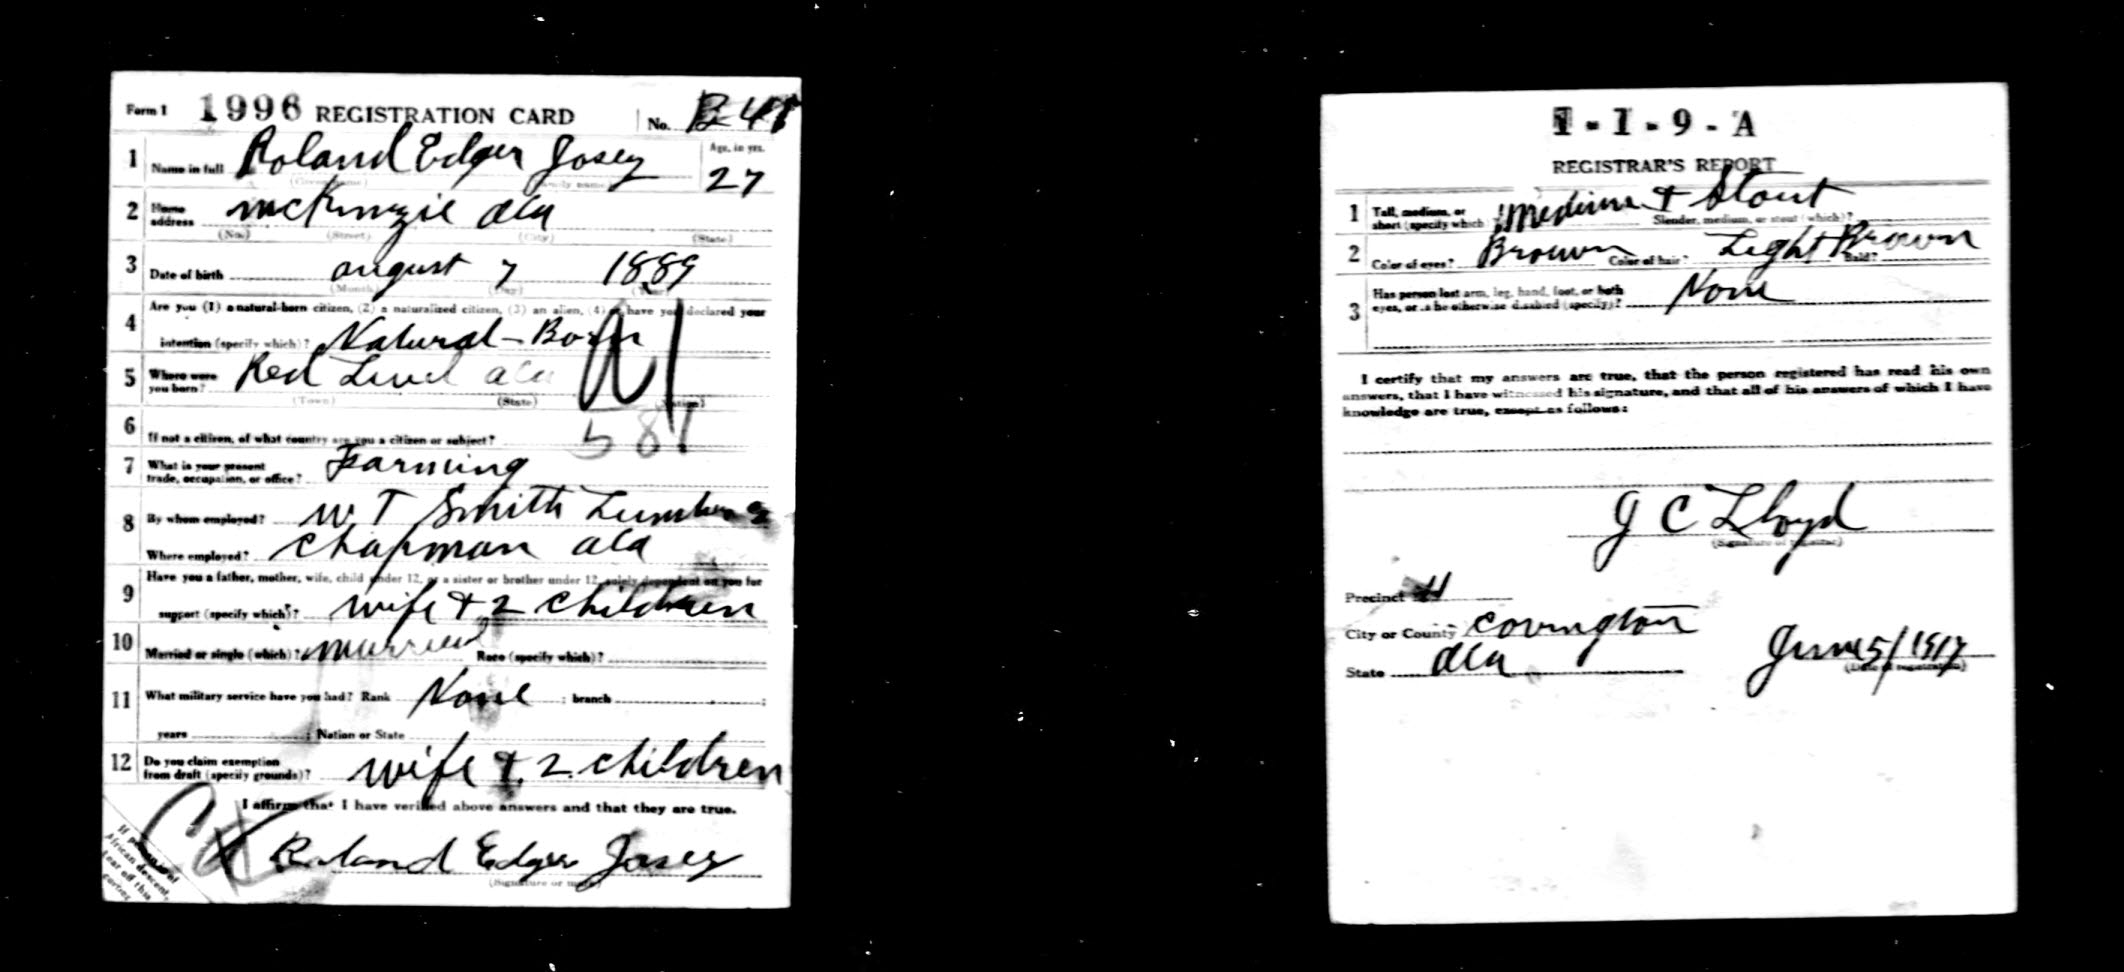 Form 1 1996 REGISTRATION CARD No. B-48
1 Name in full Roland Edger Josey Age, in yrs. 27
(Given name) (Family name)
2 Home address McKenzie Ala
(No.) (Street) (City) (State)
3 Date of birth August 7 1889
(Month) (Day) (Year)
4 Are you (1) a natural-born citizen, (2) a naturalized citizen, (3) an alien, (4) or have you declared your
intention (specify which)? Natural-Born
5 Where were you born? Red Level Ala
(Town) (State) (Nation)
6 If not a citizen, of what country are you a citizen or subject?
587
7 What is your present trade, occupation, or office? Farming
8 By whom employed? W T Smith Lumber
Where employed? Chapman Ala
9 Have you a father, mother, wife, child under 12, or a sister or brother under 12, solely dependent on you for
support (specify which)? wife + 2 children
10 Married or single (which)? Married Race (specify which)?
11 What military service have you had? Rank None ; branch ;
years ; Nation or State
12 Do you claim exemption from draft (specify grounds)? wife + 2 children
I affirm that I have verified above answers and that they are true.
Roland Edger Josey
(Signature or mark)
If person is of
African descent
tear off this
corner
1-1-9-A
REGISTRAR'S REPORT
1 Tall, medium, or short (specify which)? Medium + Stout Slender, medium, or stout (which)?
2 Color of eyes? Brown Color of hair? Light Brown Bald?
3 Has person lost arm, leg, hand, foot, or both
eyes, or is he otherwise disabled (specify)? None
I certify that my answers are true, that the person registered has read his own
answers, that I have witnessed his signature, and that all of his answers of which I have
knowledge are true, except as follows:
J C Lloyd
(Signature of registrar)
Precinct 4
City or County Covington
State Ala June 5/1917
(Date of registration)